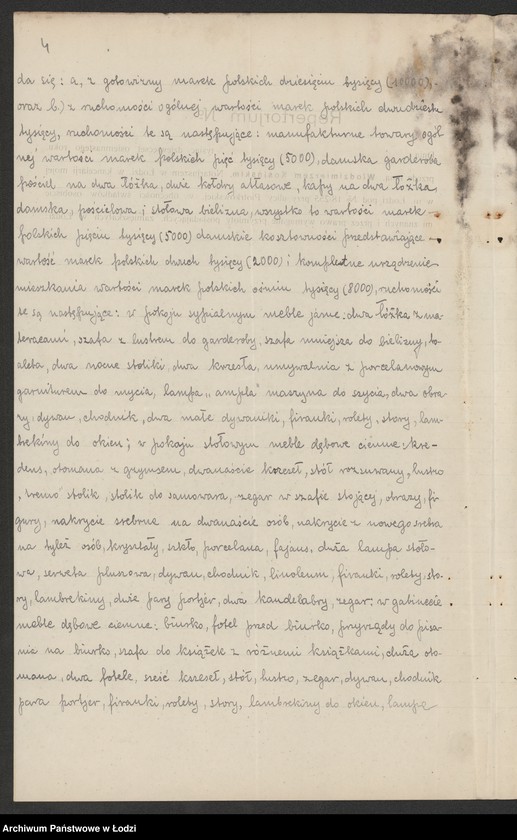 4
da się: a, z gotowizny marek polskich dziesięciu tysięcy (10000),
oraz b.) z ruchomości ogólnej wartości marek polskich dwudziestu
tysięcy, ruchomości te są następujące: manufakturne towary ogól
nej wartości marek polskich pięć tysięcy (5000), damska garderoba
pościel na dwa łóżka, dwie kołdry atłasowe, kapy na dwa łóżka
damska, pościelowa i stołowa bielizna, wszystko to wartości marek
polskich pięciu tysięcy (5000) damskie kosztowności przedstawiające
wartość marek polskich dwuch tysięcy (2000) i kompletne urządzenie
mieszkania wartości marek polskich ośmiu tysięcy (8000), ruchomości
te są następujące: w pokoju sypialnym meble jasne: dwa łóżka z ma
teracami, szafa z lustrem do garderoby, szafa mniejsza do bielizny, to-
aleta, dwa nocne stoliki, dwa krzesła, umywalnia z porcelanowym
garniturem do mycia, lampa "ampla" maszyna do szycia, dwa obra
zy, dywan, chodnik, dwa małe dywaniki, firanki, rolety, story, lam-
brekiny do okien; w pokoju stołowym meble dębowe ciemne: kre-
dens, otomana z gzymsem, dwanaście krzeseł, stół rozsuwany, lustro
, tremo stolik, stolik do samowara, zegar w szafie stojący, obrazy, fi-
gury, nakrycie srebrne na dwanaście osób, nakrycie z nowego srebra
na tyleż osób, kryształy, szkło, porcelana, fajans, duża lampa stoło-
wa, serweta pluszowa, dywan, chodnik, linoleum, firanki, rolety, sto-
ry, lambrekiny, dwie pary portjer, dwa kandelabry, zegar: w gabinecie
meble dębowe ciemne: biurko, fotel przed biurko, przyrządy do pisa-
nia na biurko, szafa do książek z różnemi książkami, duża oto-
mana, dwa fotele, sześć krzeseł, stół, lustro, zegar, dywan, chodnik
para portjer, firanki, rolety, story, lambrekiny do okien, lampę
Archiwum Państwowe w Łodzi